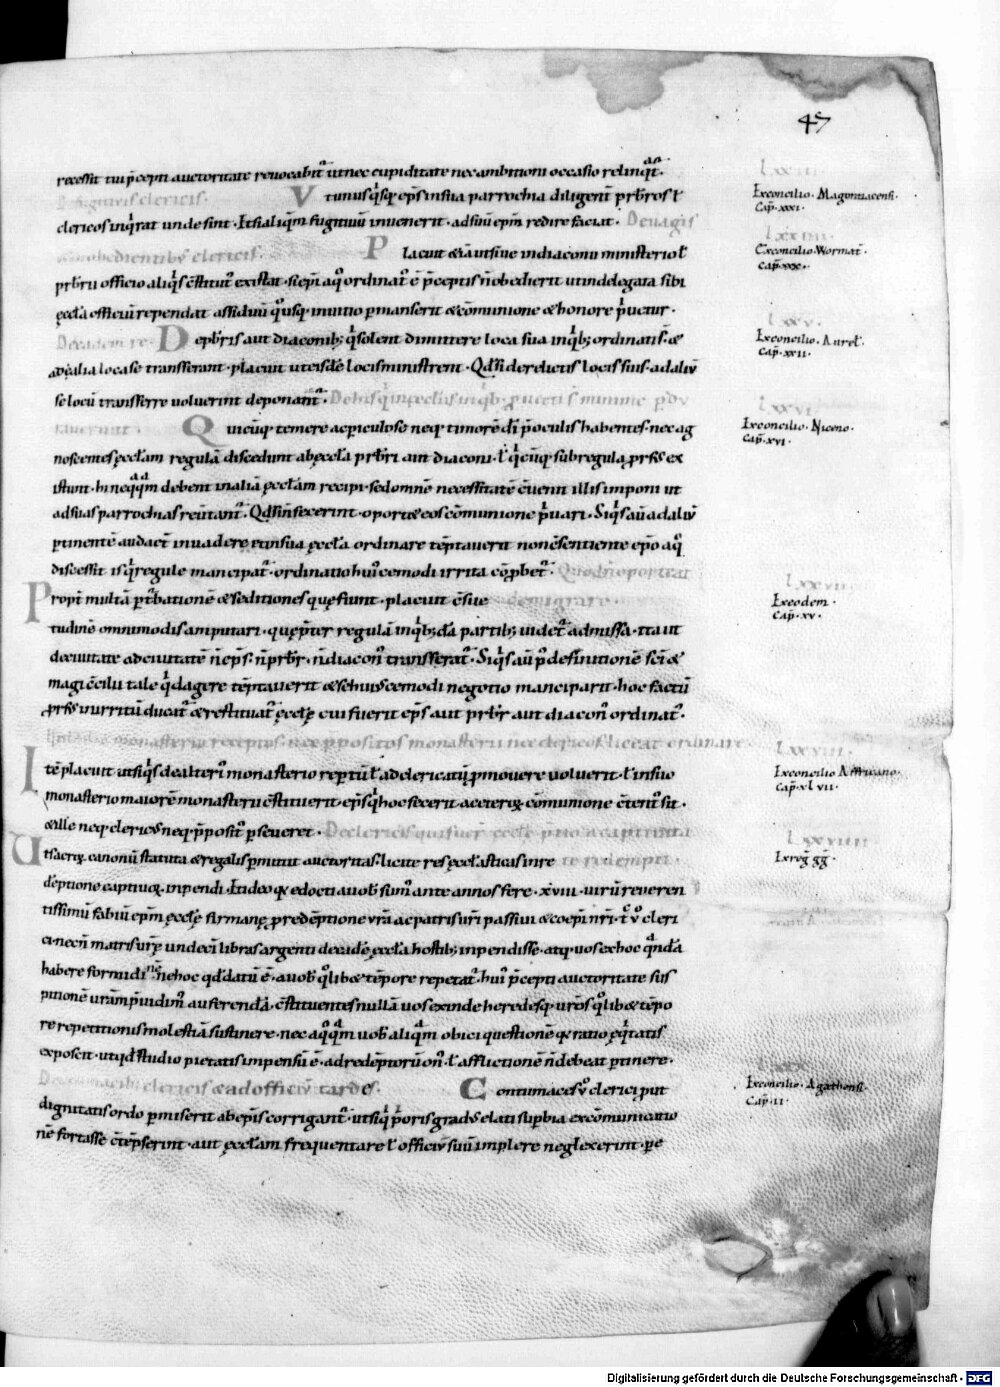 47
recessit tui p̄cepti auctoritate reuocabit᷑ ut nec cupiditate nec ambitioni occasio relinq̄t᷑.
De fugitiuis clericis. V t unusq́sq; ep̄s in sua parrochia diligent᷑ prb̄ros ł
clericos inq́rat unde sint. Et si aliq̄m fugitiuū inuenerit. ad suū ep̄m redire faciat. De uagis
inobedientib; clericis. P lacuit &iā ut siue in diaconii ministerio ł
prb̄rii officio aliq́s c̄stitut᷑ existat. si ep̄i a q̊ ordinat᷑ ē p̄ceptis n̄ obedierit ut in delegata sibi
ęcc̄la officiū rependat assiduū q̊usq; in uitio p̄manserit & cōmunione & honore p̄uetur.
De eadem re. D e prb̄ris aut diaconib; q́ solent dimittere loca sua in q́b; ordinati s̄. &
ad alia loca se transferant. placuit ut eisdē locis ministrent. Qd̄ si derelictis locis suis. ad aliū
se locū transferre uoluerint deponant᷑. De his q́ in ęcc̄liis in q́b; p̄uecti s̄ minime p̄du
rauerint. Q uicūq; temere ac periculose neq; timorē dī p̄ oculis habentes. nec ag
noscentes ęcc̄lam regulā discedunt ab ęcc̄la prb̄ri aut diaconi. ł q́cūq; sub regula prs̄s ex
istunt. hi neq̄q̄m debent in aliā ęcc̄lam recipi. sed omnē necessitatē c̄uenit illis imponi ut
ad suas parrochias reu̅tant᷑. Qd̄ si n̄ fecerint. oport& eos cōmunione p̄uari. Siq́s aū ad aliū
p̄tinentē audact᷑ inuadere et in sua ęcc̄la ordinare tēptauerit non c̄sentiente ep̄o a q̊
discessit is q́ regule mancipat᷑. ordinatio hui᷒cemodi irrita cōprbet᷑. Quod n̄ oporteat
P ropt᷑ multā p̄t᷑bationē & seditiones quę fiunt. placuit c̄sue demigrare.
tudinē omnimodis amputari. quę p̄ter regulā in q́b;dā partib; uidet᷑ admissa. Ita ut
de ciuitate ad ciuitatē n̄ ep̄s. n̄ prb̄r. n̄ diacon᷒ transferat᷑. Siq́s aū p᷒ definitionē sc̄i &
magi c̄cilii tale q́d agere tēptauerit & se huiuscemodi negotio manciparit. hoc factū
prs̄s in irritū ducat᷑ & restituat᷑ ęcc̄lę cui fuerit ep̄s aut prb̄r aut diacon᷒ ordinat᷑.
monasterio receptus nec p̄positos monasterii nec clericos liceat ordinare
I tē placuit ut siq́s de alteri᷒ monasterio rep̄tū ł ad clericatū p̄mouere uoluerit. ł in suo
monasterio maiorē monasterii c̄stituerit. ep̄s q́ hoc fecerit a ceterorꝝ cōmunione c̄tent᷒ sit.
& ille neq; clericus neq; p̄posit᷒ p̄seueret. De clericis qui suer᷑ ęcc̄lę p̄tio a captiuita
U t sacrorꝝ canonū statuta & regalis p̄mittit auctoritas. licite res ęcc̄lasticas in re te redempti.
dēptione captiuorꝝ inpendi. Et ideo qr edocti a uob̄ sum᷒ ante annos fere. xviii. uirū reueren
tissimū fabiū ep̄m ęcc̄lę firmanę p̄ redēptione vr̄a ac patris uri passiui & coep̄i nr̄i. tc̊ ů cleri
ci. necn̄ matris urę undecī libras argenti de eadē ęcc̄la hostib; inpendisse. atq; uos ex hoc q̄ndā
habere formidinē ne hoc qd̄ datū ē. a uob̄ q̊lib& tēpore repetat᷑. hui᷒ p̄cepti auctoritate sus
pitionē urām p̄uidim᷒ auferendā. c̄stituentes nullā uos exinde heredesq; uros q̊lib& tēpo
re repetitionis molestiā sustinere. nec a q̊q̄m uob̄ aliq̄m obici questionē qr ratio eq́tatis
exposcit. ut qd̄ studio pietatis impensū ē. ad redēptorū on᷒ ł afflictionē n̄ debeat p̄tinere.
De contumacib; clericis & ad officiū tardes. C ontumaces ů clerici put
dignitatis ordo p̄miserit ab ep̄is corrigant᷑. ut siq́ ṕoris gradus elati sup̄bia excōmunicatio
nē fortasse c̄tēpserint. aut ęcc̄lam frequentare ł officiū suū implere neglexerint. pe
Lxxiii
Ex concilio. Magontiacensi.
Cap̄. xxxi.
Lxxiiii
Ex concilio Wormat᷑.
cap̄. xxx.
Lxxv.
Ex concilio. Aurel᷑.
Cap̄. xxii.
Lxxvi
Ex concilio. Niceno.
Cap̄. xvi.
Lxxvii
Ex eodem.
Cap̄. xv.
Lxxviii.
Ex concilio Affricano.
Cap̄. xl vii.
Lxxviiii
Ex reg̃ gg̃.
Lxxx
Ex concilio. Agathensi.
Cap̄. ii.
Digitalisierung gefördert durch die Deutsche Forschungsgemeinschaft - DFG